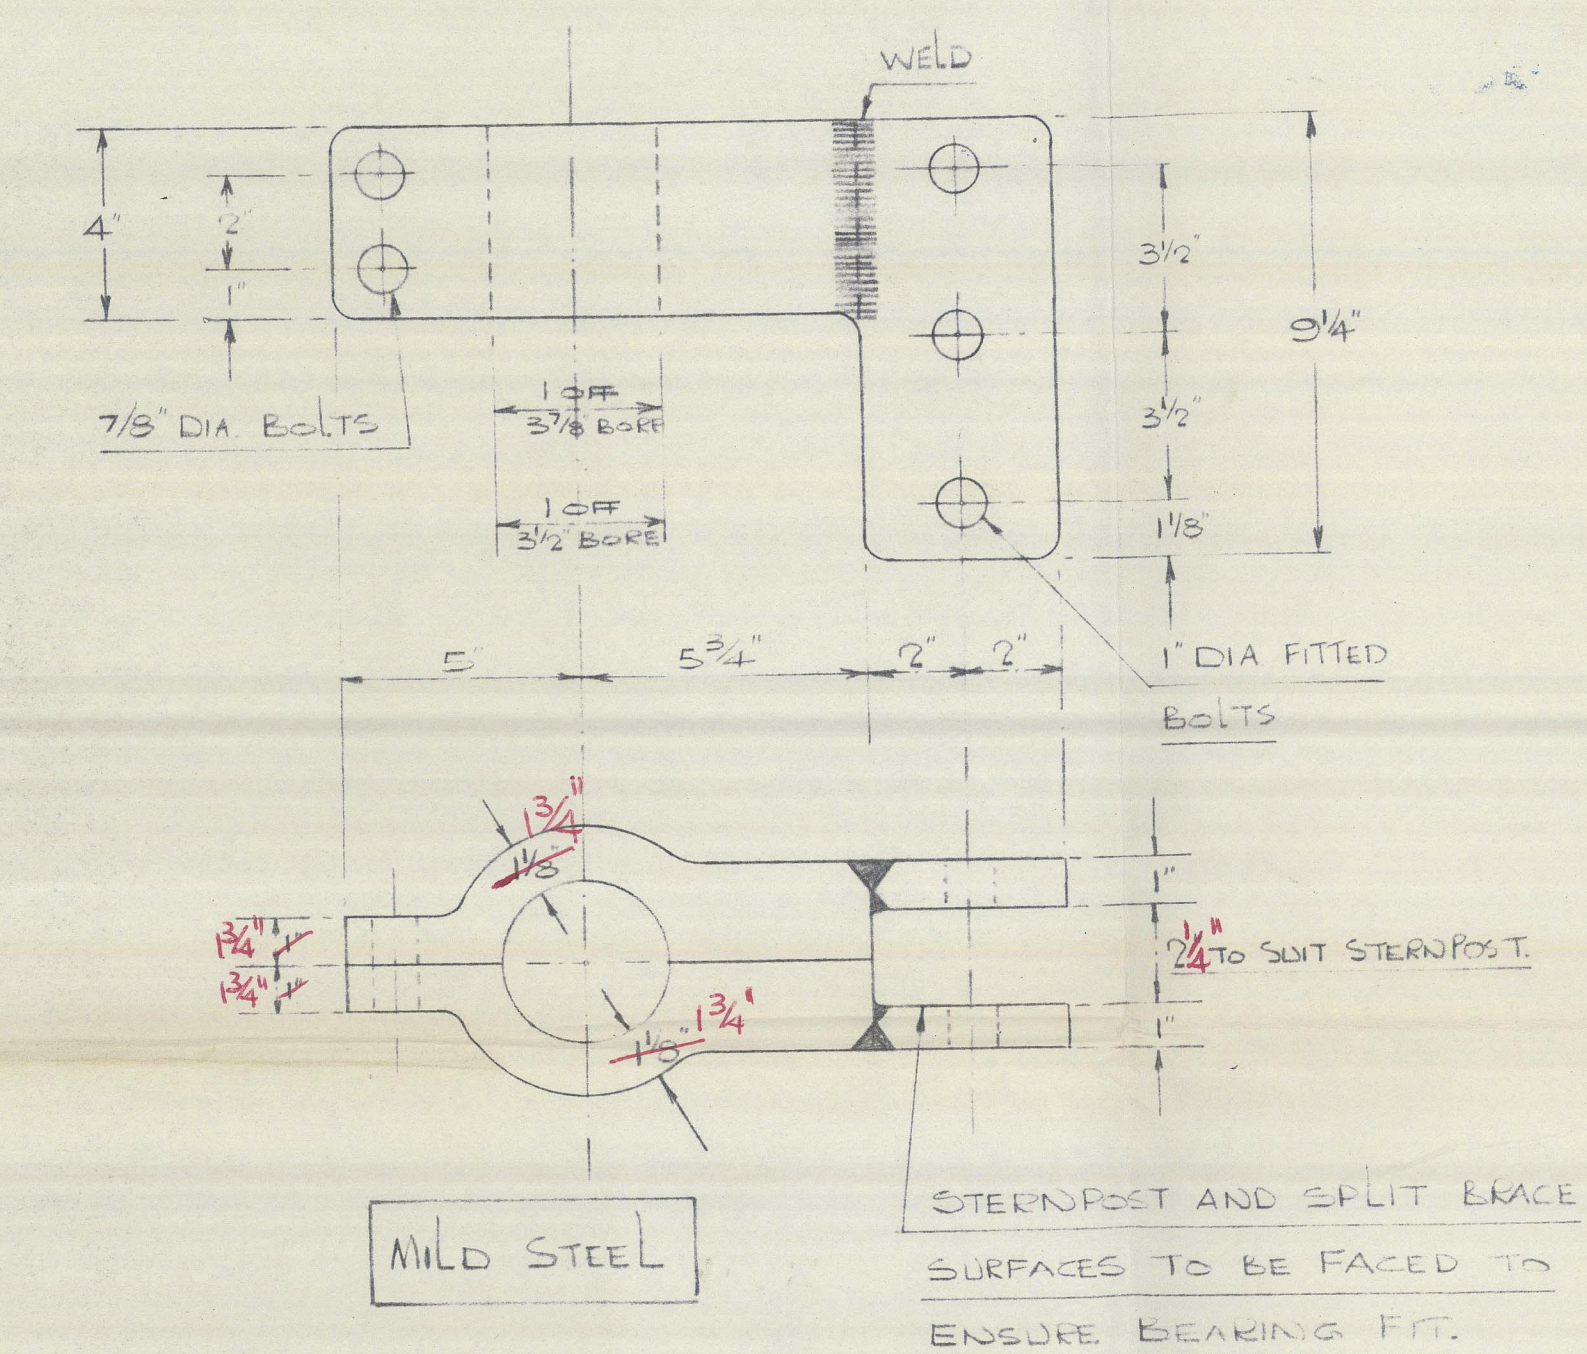 WELD
4"
2"
1"
3 1/2"
9 1/4"
3 1/2"
1 1/8"
7/8" DIA. BOLTS
1 OFF
3 7/8" BORE
1 OFF
3 1/2" BORE
5"
5 3/4"
2"
2"
1" DIA FITTED
BOLTS
1 3/4"
1 1/8"
1"
1 3/4"
1"
2 1/4" TO SUIT STERNPOST.
1 3/4"
1"
1 3/4"
1 1/8"
1"
MILD STEEL
STERNPOST AND SPLIT BRACE
SURFACES TO BE FACED TO
ENSURE BEARING FIT.